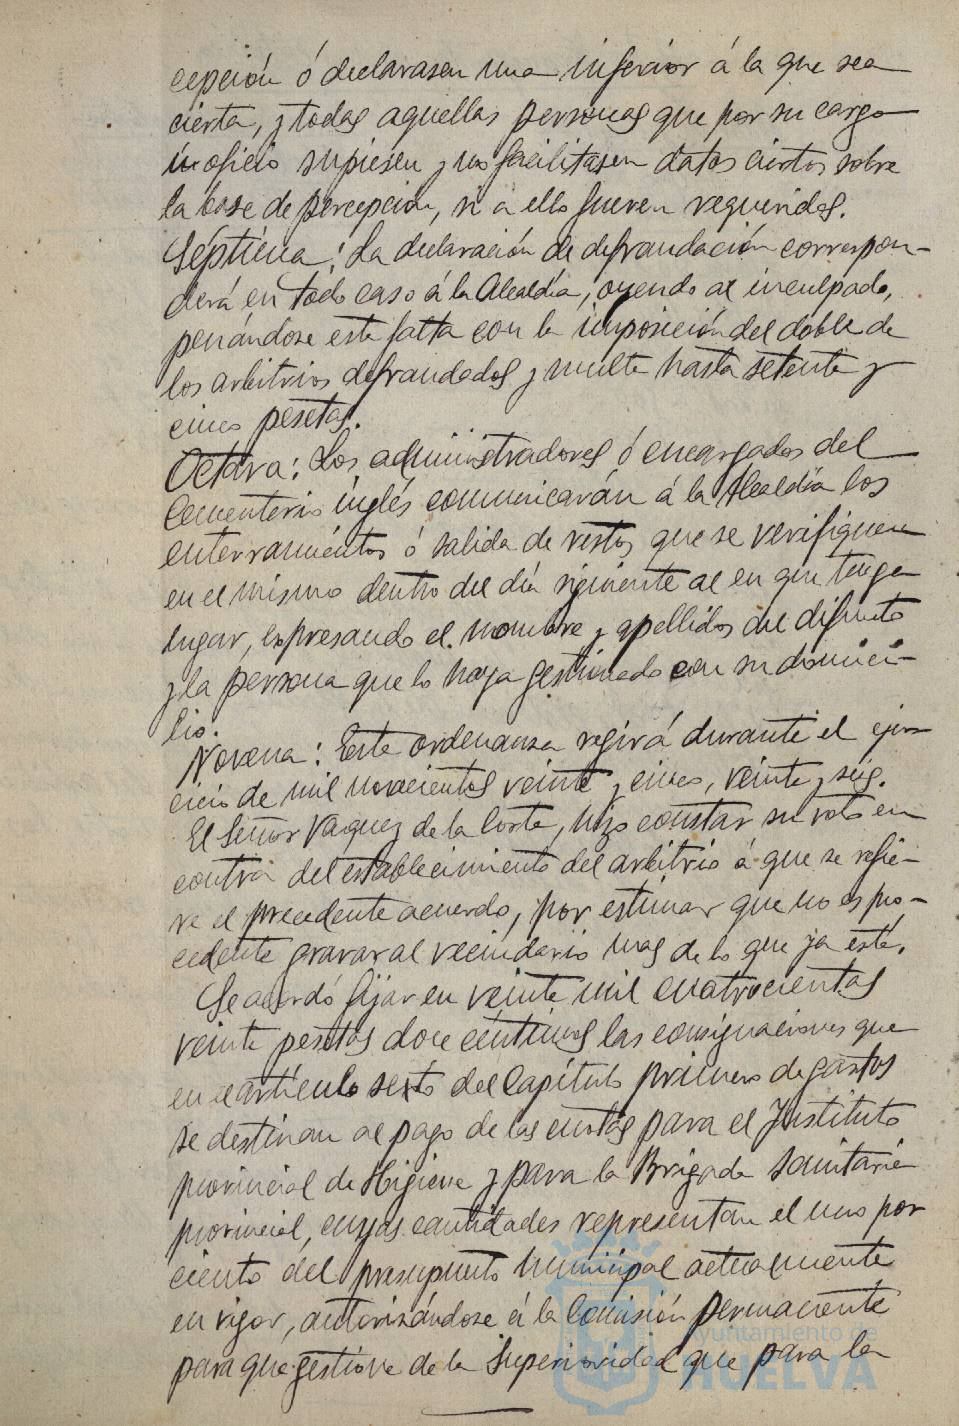 cepción ó declarasen una inferior á la que sea
cierta, y todas aquellas personas que por su cargo
ú oficio supiesen y no facilitasen datos ciertos sobre
la base de percepción, si a ello fueren requeridos.
Séptima: La declaración de defraudación correspon-
derá en todo caso á la Alcaldía, oyendo al inculpado,
penándose esta falta con la imposición del doble de
los arbitrios defraudados y multa hasta setenta y
cinco pesetas.
Octava: Los administradores ó encargados del
Cementerio inglés comunicarán á la Alcaldía los
enterramientos ó salida de restos que se verifiquen
en el mismo dentro del día siguiente al en que tenga
lugar, expresando el nombre y apellidos del difunto
y la persona que lo haya gestionado con su domici-
lio.
Novena: Esta ordenanza regirá durante el ejer-
cicio de mil novecientos veinte y cinco, veinte y seis.
El Señor Vazquez de la Corte, hizo constar su voto en
contra del establecimiento del arbitrio á que se refie-
re el precedente acuerdo, por estimar que no es pro-
cedente gravar al vecindario mas de lo que ya está.
Se acordó fijar en veinte mil cuatrocientas
veinte pesetas doce céntimos las consignaciones que
en el artículo sexto del Capítulo primero de gastos
se destinan al pago de las cuotas para el Instituto
provincial de Higiene y para la Brigada Sanitaria
provincial, cuyas cantidades representan el uno por
ciento del presupuesto municipal actualmente
en vigor, autorizándose á la Comisión permanente
para que gestione de la Superioridad que para la
Ayuntamiento de
HUELVA